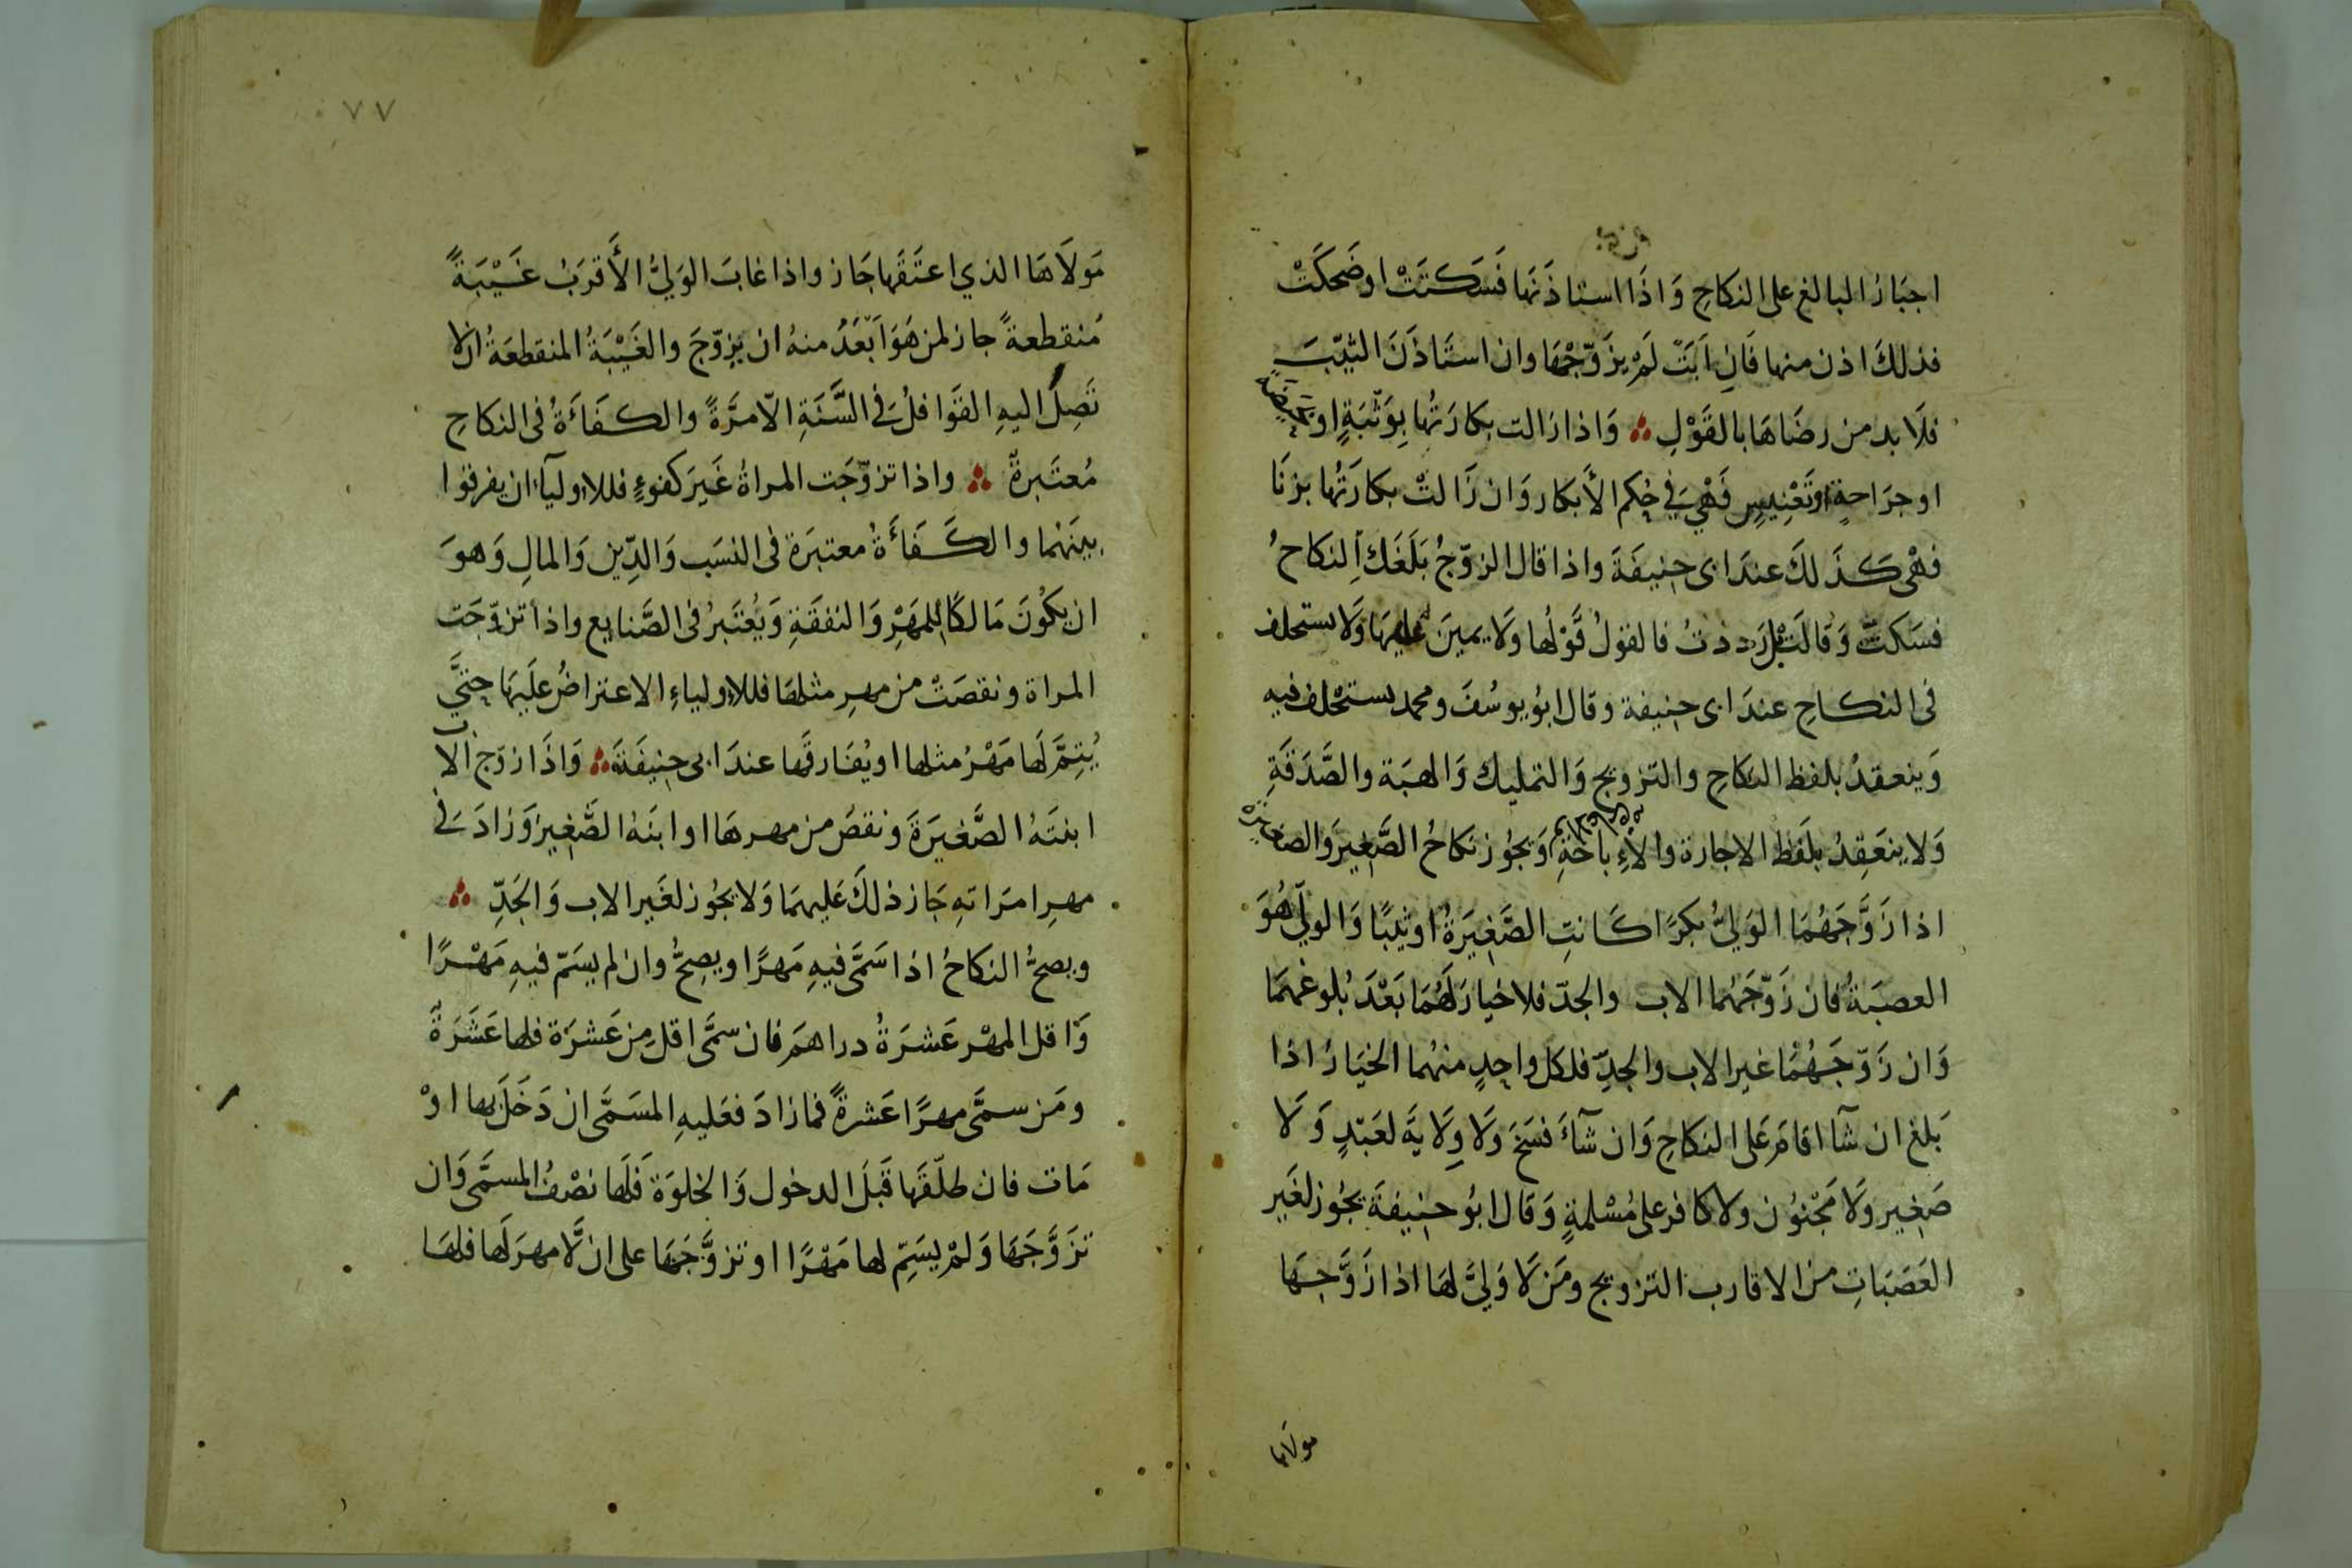 اجبَارُ البالغ على النكاحِ وَاذَا استاذَنهَا فَسَكتَتْ اوضَحكَتْ
فذلكَ اذن منها فَانِ اَبَتْ لَمْ يزَوّجْهَا وان استَاذَنَ الثيّبَ
فلَا بد من رضَاهَا بالقَوْلِ وَاذا زالت بكارَتُها بِوَثْبَةٍ او حيضة
او جرَاحةٍ او تَعْنِيسٍ فَهْيَ فِي حُكم الأَبكار وَان زَالتْ بكارَتُها بزنَا
فهْى كَذَلكَ عندَ ابى حنِيفَةَ واذا قال الزوّجُ بَلَغَكِ النكاحُ
فسَكتِّ وَقالَتْ بَلْ رَددتُ فالقولُ قَوْلُها ولَا يمينَ عليهَا وَلَا يستحلف
فى النكاحِ عندَ ابى حنِيفة وقال ابُو يوسُفَ ومحمد يستحْلف فيه
وَينعقدُ بلفظ النكاحِ والتزويج وَالتمليك وَالهبَة والصَّدَقَةِ
وَلا ينعَقِدُ بلَفظ الاجارة والاِباحَةِ وَيجُوز نكاحُ الصَّغيرَ وَالصغيرة
اذا زَوَّجَهُمَا الوَليُّ بكرًا كَانتِ الصَّغيرَةُ او ثيبًا وَالوليّ هُوَ
العصبَةُ فان زَوّجَهُمَا الاب والجدّ فلا خيارَ لَهُمَا بَعْدَ بُلوغهمَا
وَان زَوّجَهُمَا غير الاب والجدِّ فلكل واحِدٍ منهُما الخيَارُ اذا
بَلغ ان شآ اقامَ عَلى النكاحِ وَان شآءَ فسَخَ وَلَا وِلَايَةَ لعَبْدٍ وَلَا
صَغِير وَلَا مَجْنُون ولا كافر على مُسْلمةٍ وَقال ابُو حنِيفةَ يجُوز لغَير
العَصَبَاتِ من الاقارب التزويج ومَن لَا وَليَّ لهَا اذا زَوَّجهَا
مولاها
٧٧
مَولَاهَا الذي اعتَقَها جَاز واذا غابَ الوَليُّ الأَقرَبُ غَيْبَةً
مُنقطعةً جاز لمن هَوَ اَبْعَدُ منهُ ان يزوّجَ والغَيْبَةُ المنقطعَةُ ان لا
تَصِلَ اليهِ القوَافلُ فى السَّنَةِ الّا مرَّةً والكفَاءَةُ فى النكاحِ
مُعتَبرةٌ واذا تزوّجَت المراةُ غَيرَ كفوءٍ فللاوليآءِ ان يفرقوا
بينَهُمَا والكَفَاءَةُ معتبرَة فى النسَب وَالدِّين وَالمالِ وَهوَ
ان يكُونَ مَالكًا للمَهْرِ وَالنفقَةِ وَيُعْتَبرُ فى الصَّنايع واذا تزوّجَت
المراة ونقصَتْ من مهرِ مثلهَا فللاولياءِ الاعتراضُ عليَهَا حتَّى
يُتِمَّ لَهَا مَهْرُ مثلها او يُفَارقَها عندَ ابى حنِيفَةَ وَاذَا زوّج الاب
ابنتَهُ الصَّغيرَةَ ونقصَ من مهرهَا او ابنَهُ الصَّغيرَ وَزادَ فى
مهرِ امرَاتهِ جَاز ذلكَ عَليهمَا وَلا يجُوز لغَير الاب وَالجَدِّ
ويصحُّ النكاحُ اذا سَمَّى فيهِ مَهرًا ويصِحُّ وان لم يسَمّ فيهِ مَهْرًا
وَاقل المهْر عَشرَةُ دراهمَ فان سمَّى اقل مِن عَشرَة فلها عَشَرَةٌ
ومَن سمَّى مهرًا عَشرةً فمازادَ فعَليهِ المسَمَّى ان دَخَلَ بها اوْ
مَات فان طلّقَها قَبلَ الدخول وَالخلوَة فلَها نصْفُ المسمَّى وَان
تزَوَّجَهَا وَلمْ يسَمِّ لها مَهْرًا او تزوَّجَهَا على ان لَّا مهرَ لَها فلهَا